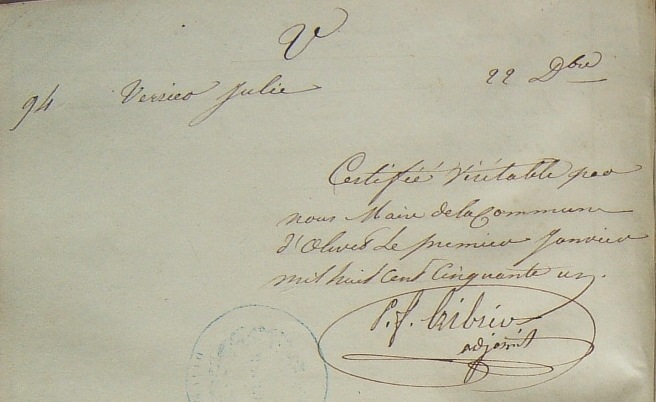 V
94 Versico Julie 22 Dbre
Certifié Véritable par
nous Maire de la Commune
d'Olives Le premier Janvier
mil huit cent Cinquante un.
P. J.
adjoint